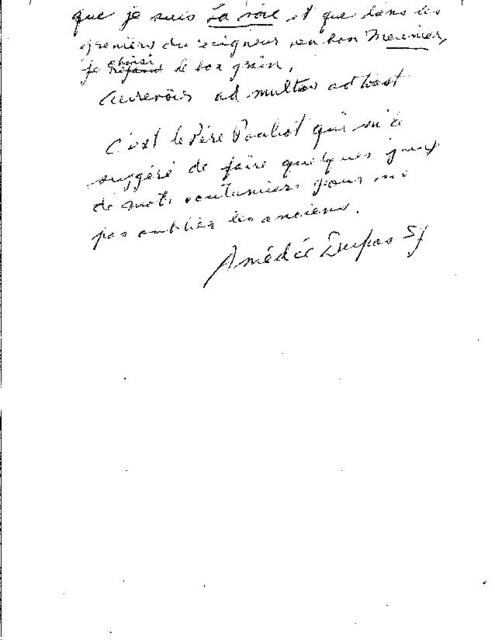 que je suis La voie et que dans les
greniers du seigneur, en bon Meunier,
je choisi le bon grain,
Aurevoir ad multos ad
C'est le Père Pouliot qui m'a
suggéré de faire quelques jeux
de mots coutumiers pour ne
pas oublier les anciens.
Amédée Dupas SJ